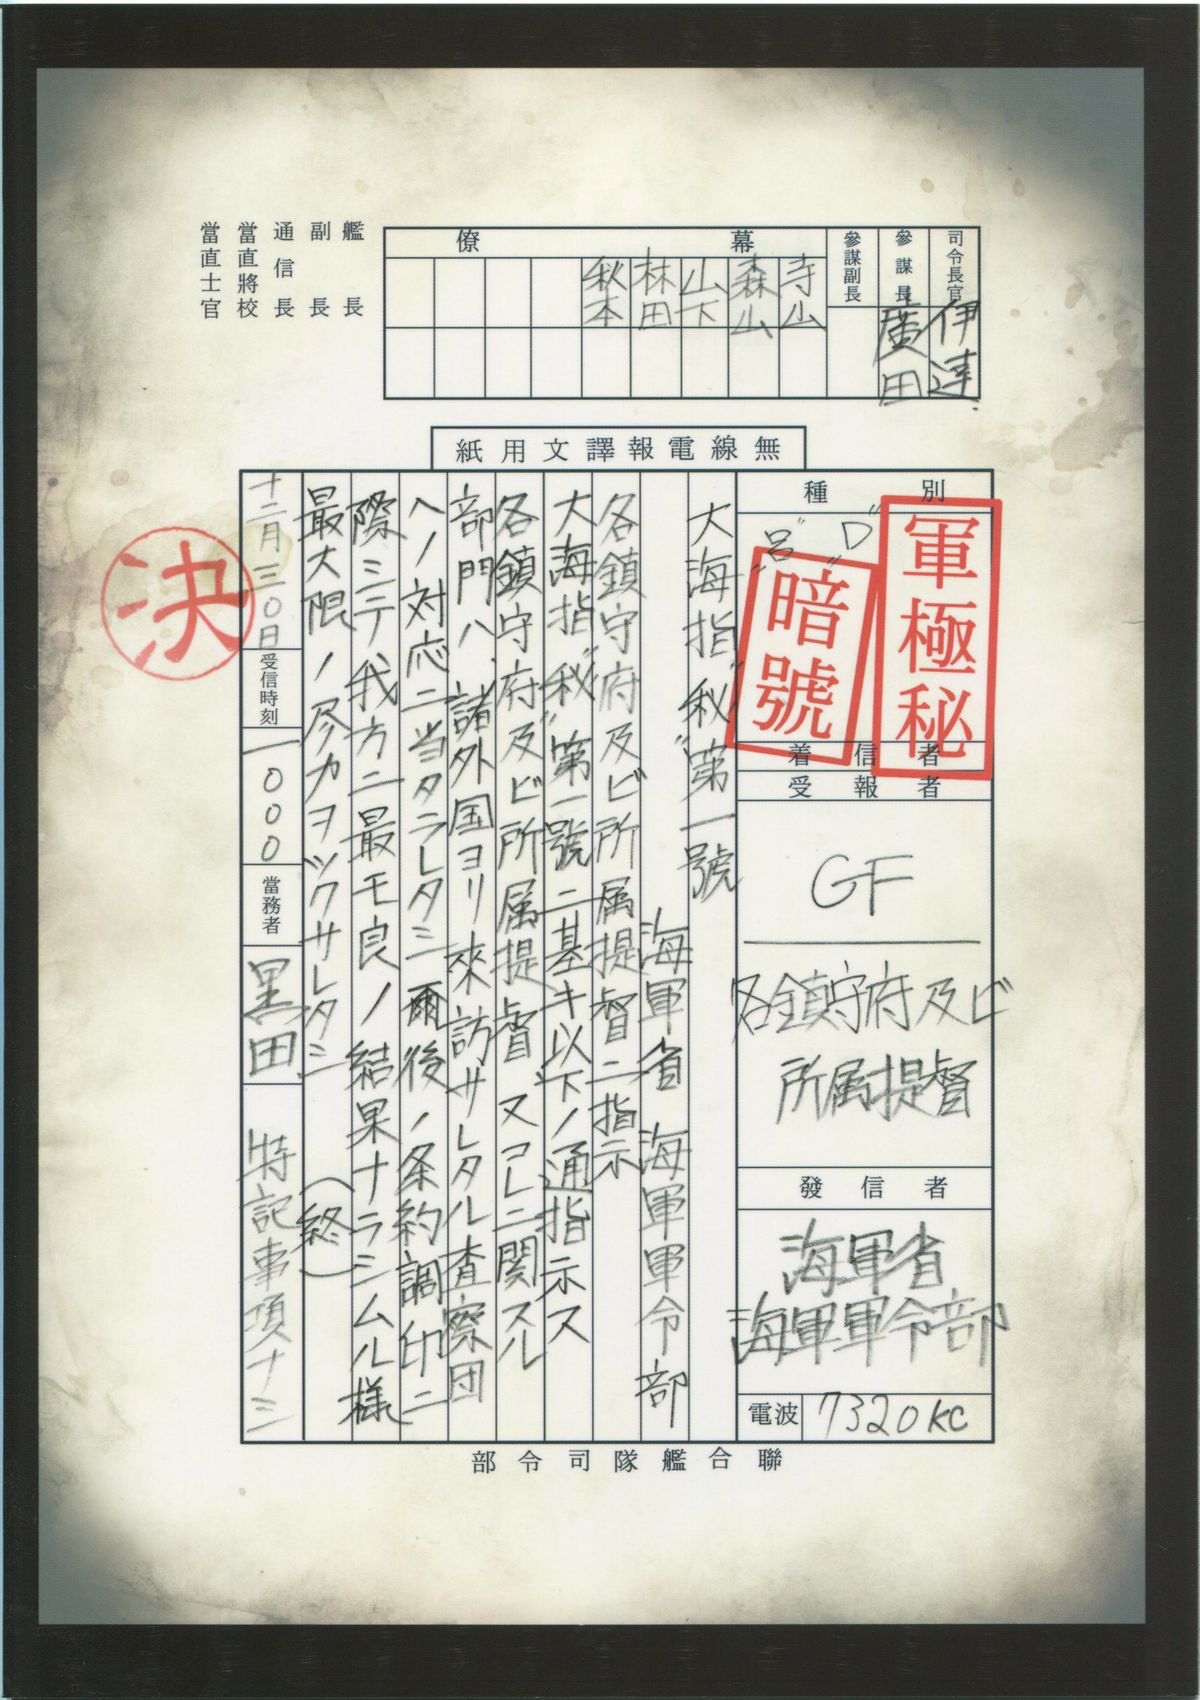 司令長官
伊達
參謀長
廣田
參謀副長
幕僚
寺山
森山
山下
林田
秋本
艦長
副長
通信長
當直將校
當直士官
無線電報譯文用紙
種別
軍極秘
暗號
"D"
"呂"
着信者
受報者
GF
各鎮守府及ビ
所属提督
發信者
海軍省
海軍軍令部
電波
7320KC
大海指"秘"第一號
海軍省 海軍軍令部
各鎮守府及ビ所属提督ニ指示
大海指"秘"第一號ニ基キ以下ノ通指示ス
各鎮守府及ビ所属提督、又之ニ関スル
部門ハ、諸外国ヨリ來訪サレタル査察団
ヘノ対応ニ当タラレタシ爾後ノ条約調印ニ
際シテ我方ニ最モ良ノ結果ナラシムル様
最大限ノ尽力ヲツクサレタシ
(終)
十二月三〇日
受信時刻
一000
當務者
黒田
特記事項ナシ
決
聯合艦隊司令部